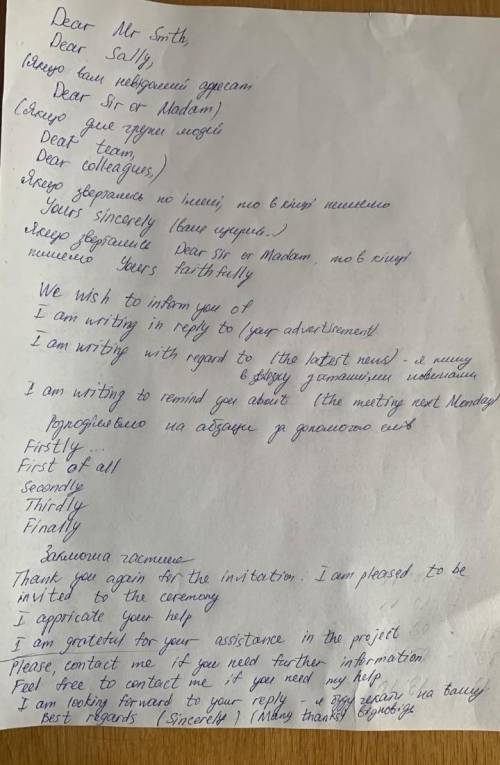 Dear Mr Smith,
Dear Sally,
(Якщо вам невідомий адресат
Dear Sir or Madam)
(Якщо для групи людей
Dear team,
Dear colleagues,)
Якщо звертались по імені, то в кінці пишемо
Yours sincerely (ваш щирий..)
Якщо звертались Dear Sir or Madam, то в кінці
пишемо Yours faithfully
We wish to inform you of
I am writing in reply to (your advertisement)
I am writing with regard to (the latest news) - я пишу
в зв'язку з останніми новинами
I am writing to remind you about (the meeting next Monday)
Розподіляємо на абзаци за допомогою слів
Firstly ...
First of all
Secondly
Thirdly
Finally
Заключна частина
Thank you again for the invitation. I am pleased to be
invited to the ceremony
I appricate your help
I am grateful for your assistance in the project
Please, contact me if you need further information
Feel free to contact me if you need my help
I am looking forward to your reply - я буду чекати на вашу
Best regards (Sincerely) (Many thanks) відповідь